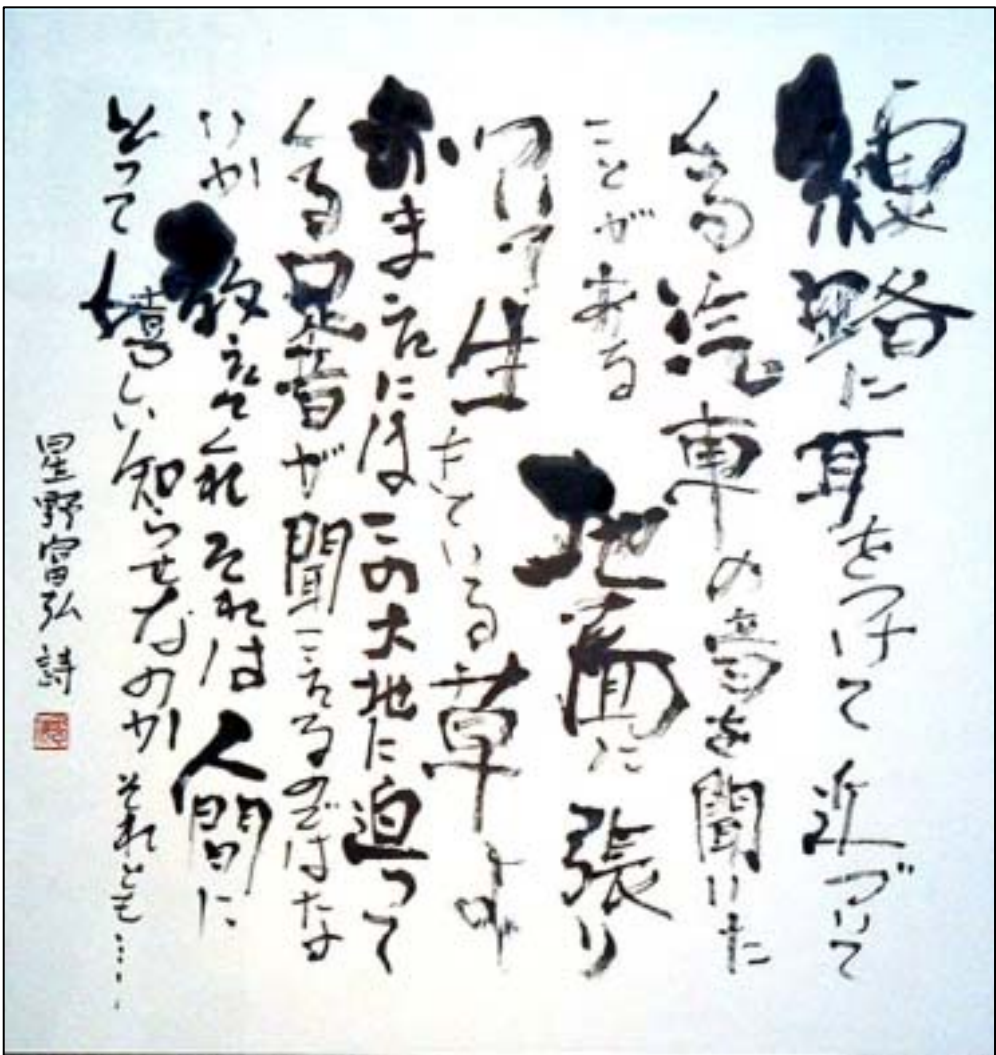 線路に耳をつけて近づいて
くる汽車の音を聞いた
ことがある 地面に張り
ついて生きている草よ
おまえにはこの大地に迫って
くる足音が聞こえるのではな
いか 教えてくれそれは人間に
とって嬉しい知らせなのか それとも……
星野富弘 詩